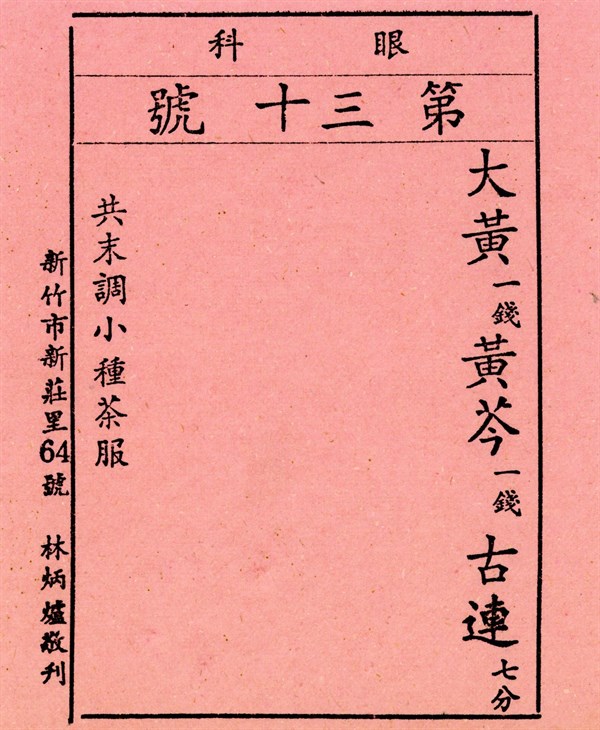 眼科
第三十號
大黃一錢黃芩一錢古連七分
共末調小種茶服
新竹市新莊里64號 林炳爐敬刊